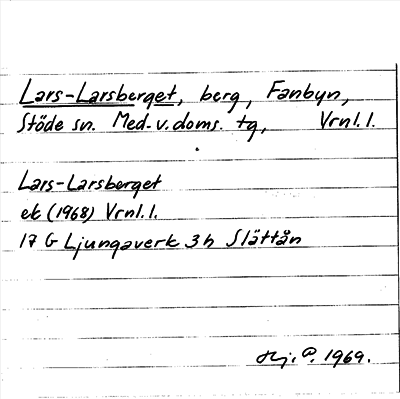 Lars-Larsberget, berg, Fanbyn,
Stöde sn. Med. v. doms. tg, Vrnl. 1.
Lars-Larsberget
ek (1968) Vrnl. 1.
17 G Ljungaverk 3h Slättån
Hj. P. 1969.